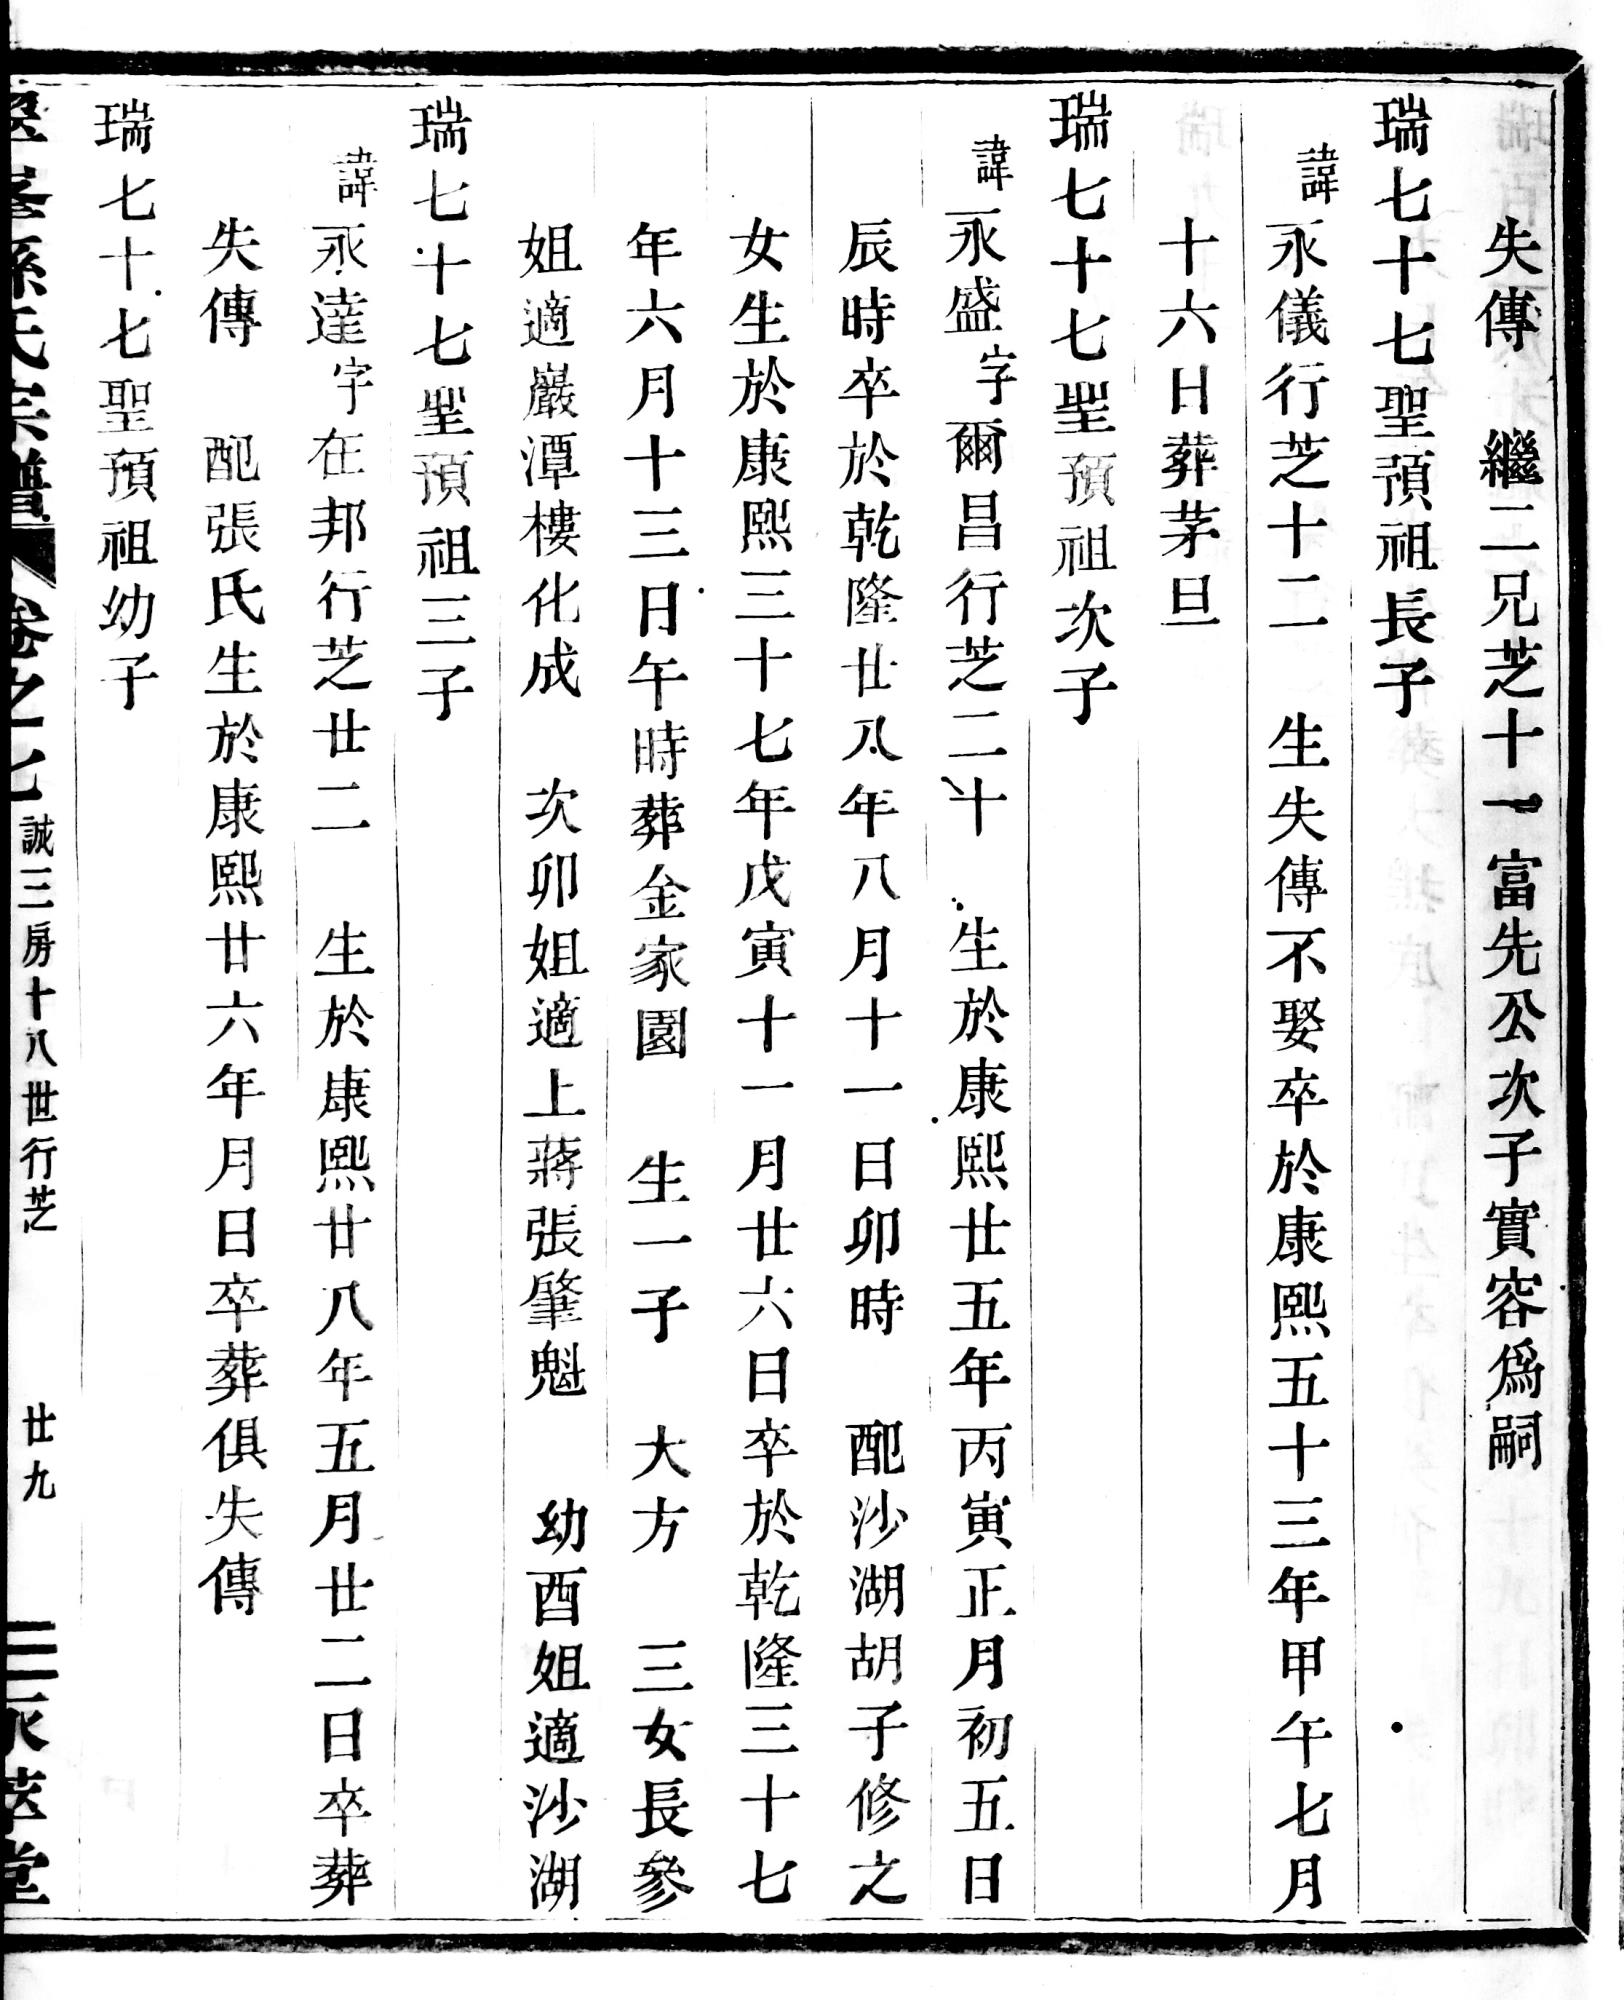 失傳　繼二兄芝十一富先公次子實容爲嗣
瑞七十七聖預祖長子
諱永儀行芝十二　生失傳不娶卒於康熙五十三年甲午七月
十六日葬茅旦
瑞七十七聖預祖次子
諱永盛字爾昌行芝二十　生於康熙廿五年丙寅正月初五日
辰時卒於乾隆廿八年八月十一日卯時　配沙湖胡子修之
女生於康熙三十七年戊寅十一月廿六日卒於乾隆三十七
年六月十三日午時葬金家園　生一子　大方　三女長參
姐適巖潭樓化成　次卯姐適上蔣張肇魁　幼酉姐適沙湖
瑞七十七聖預祖三子
諱永達字在邦行芝廿二　生於康熙廿八年五月廿二日卒葬
失傳　配張氏生於康熙廿六年月日卒葬俱失傳
瑞七十七聖預祖幼子
峯孫氏宗譜　卷之七　誠三房十八世行芝　廿九　永萃堂